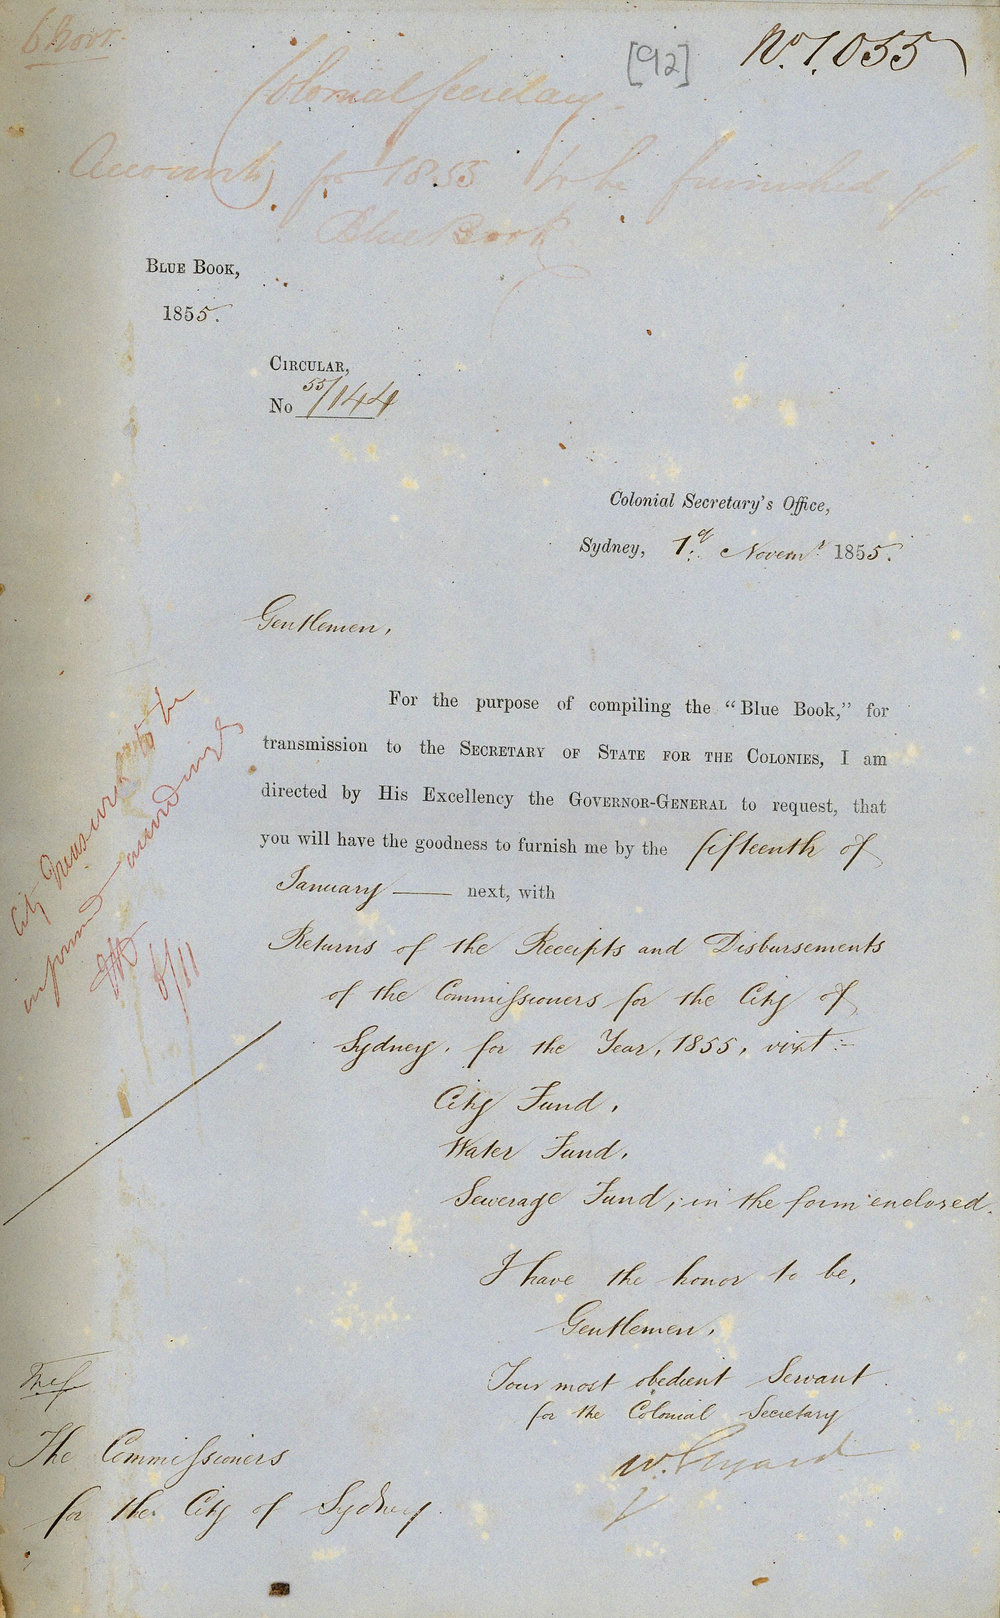 6 Novr.
[92]
No. 1.055
Colonial Secretary.
Accounts for 1855 to be furnished for
Blue Book
BLUE BOOK,
1855.
CIRCULAR,
No 55/144
Colonial Secretary's Office,
Sydney, 1st. Novemr. 1855.
Gentlemen,
For the purpose of compiling the "Blue Book," for
transmission to the SECRETARY OF STATE FOR THE COLONIES, I am
directed by His Excellency the GOVERNOR-GENERAL to request, that
you will have the goodness to furnish me by the fifteenth of
January —— next, with
Returns of the Receipts and Disbursements
of the Commissioners for the City of
Sydney. for the Year, 1855, vizt:-
City Fund,
Water Fund,
Sewerage Fund, in the form enclosed.
I have the honor to be,
Gentlemen,
Your most obedient Servant
for the Colonial Secretary
W. Elyard
City Treasurer to be
informed
6/11
The Commissioners
for the City of Sydney